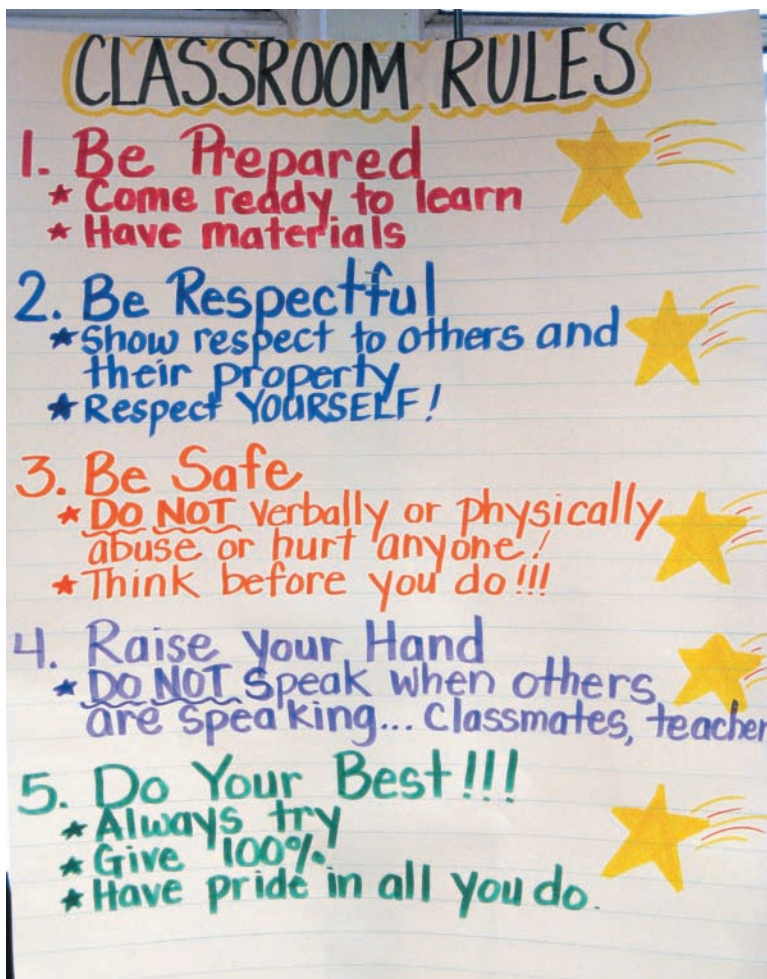 CLASSROOM RULES
1. Be Prepared
★ Come ready to learn
★ Have materials
2. Be Respectful
★ Show respect to others and
their property
★ Respect YOURSELF!
3. Be Safe
★ DO NOT verbally or physically
abuse or hurt anyone!
★ Think before you do!!!
4. Raise Your Hand
★ DO NOT speak when others
are speaking... classmates, teacher
5. Do Your Best!!!
★ Always try
★ Give 100%
★ Have pride in all you do.